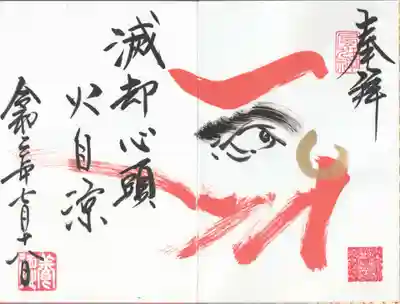 奉拝
滅却心頭
火自涼
令和三年七月十八日